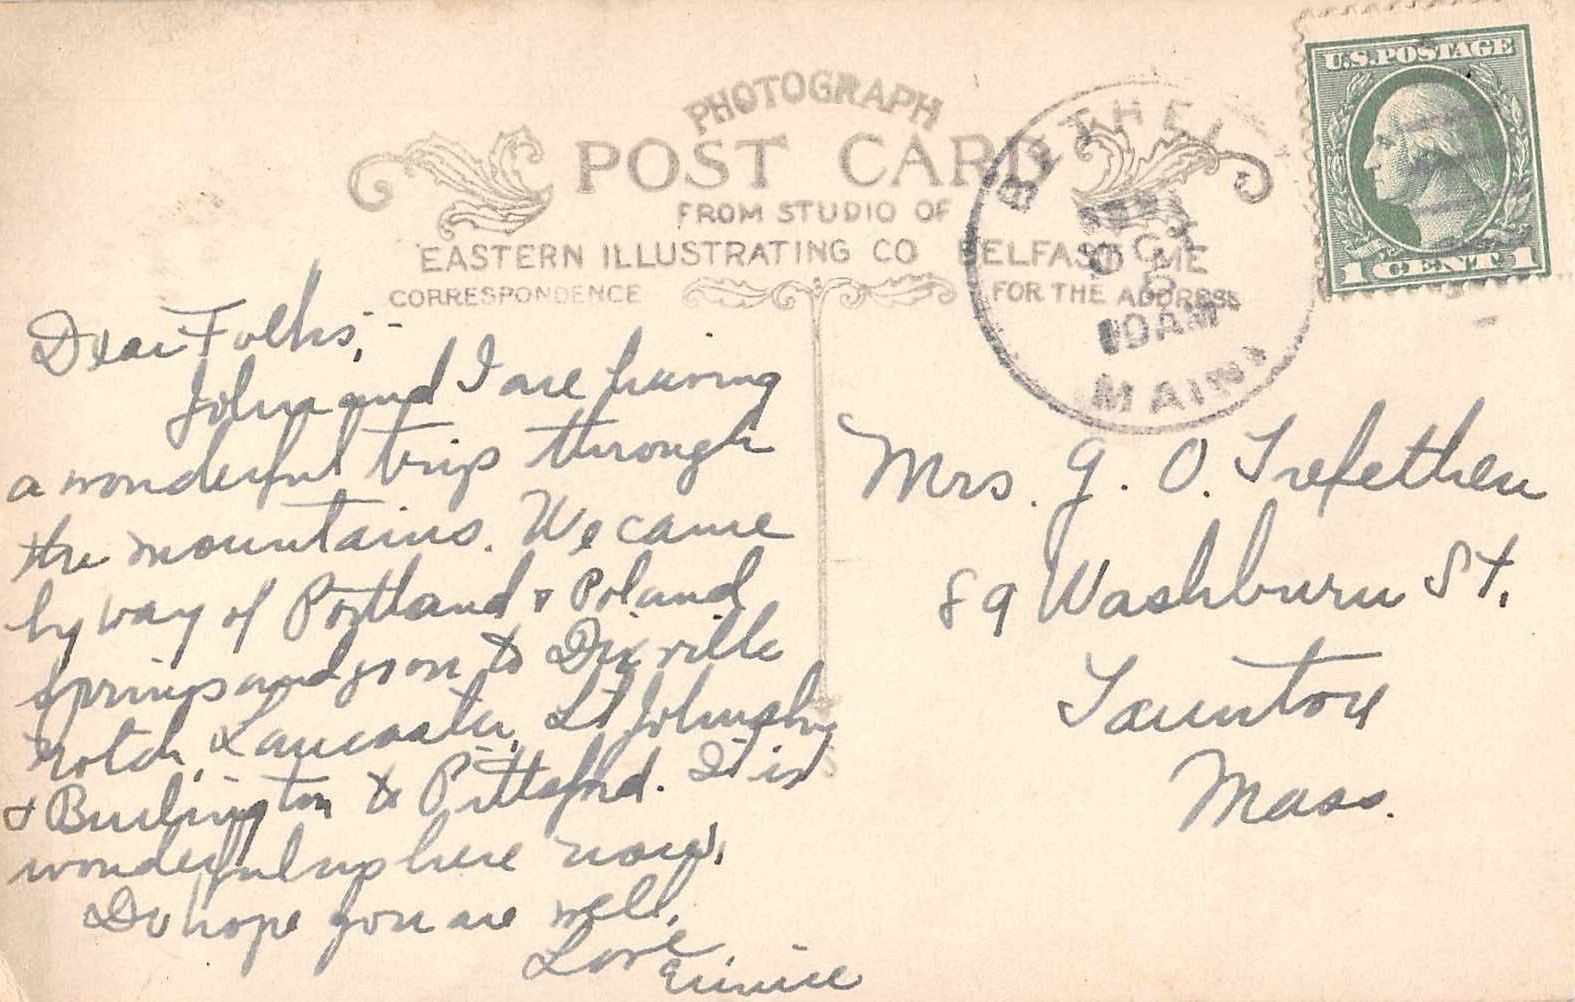 PHOTOGRAPH
POST CARD
FROM STUDIO OF
EASTERN ILLUSTRATING CO BELFAST ME
CORRESPONDENCE
FOR THE ADDRESS
U.S. POSTAGE
1 CENT 1
BETHEL
10 AM
MAINE
Dear Folks;-
John and I are having
a wonderful trip through
the mountains. We came
by way of Portland & Poland
Springs and go on to Dixville
Notch, Lancaster, St Johnsbury
& Burlington to Pittsford. It is
wonderful up here now.
Do hope you are well.
Love
Eunice
Mrs. G. O. Trefethen
89 Washburn St.
Taunton
Mass.